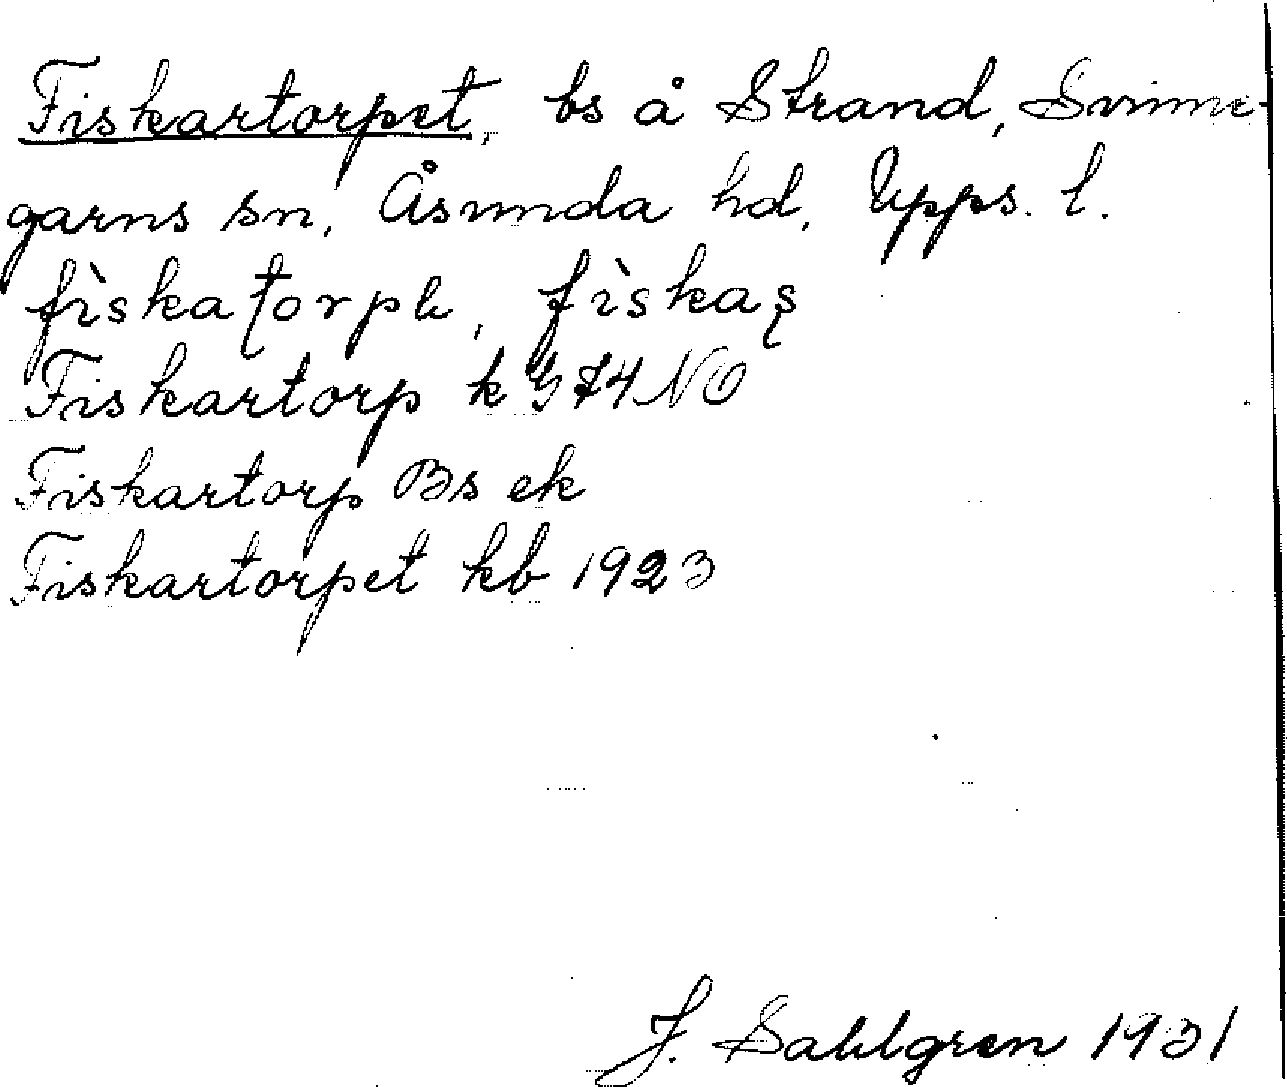 Fiskartorpet, bs å Strand, Svinne-
garns sn, Åsunda hd, Upps. l.
fìskaʈorpɩ, fìskaʂ
Fiskartorp k G 74 NO
Fiskartorp Bs ek
Fiskartorpet kb 1923
J. Sahlgren 1931